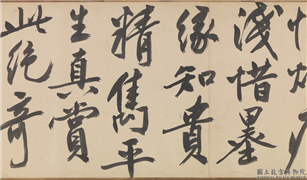 淺惜墨
緣知貴
精雋平
生真賞
此絕奇
國立故宮博物院